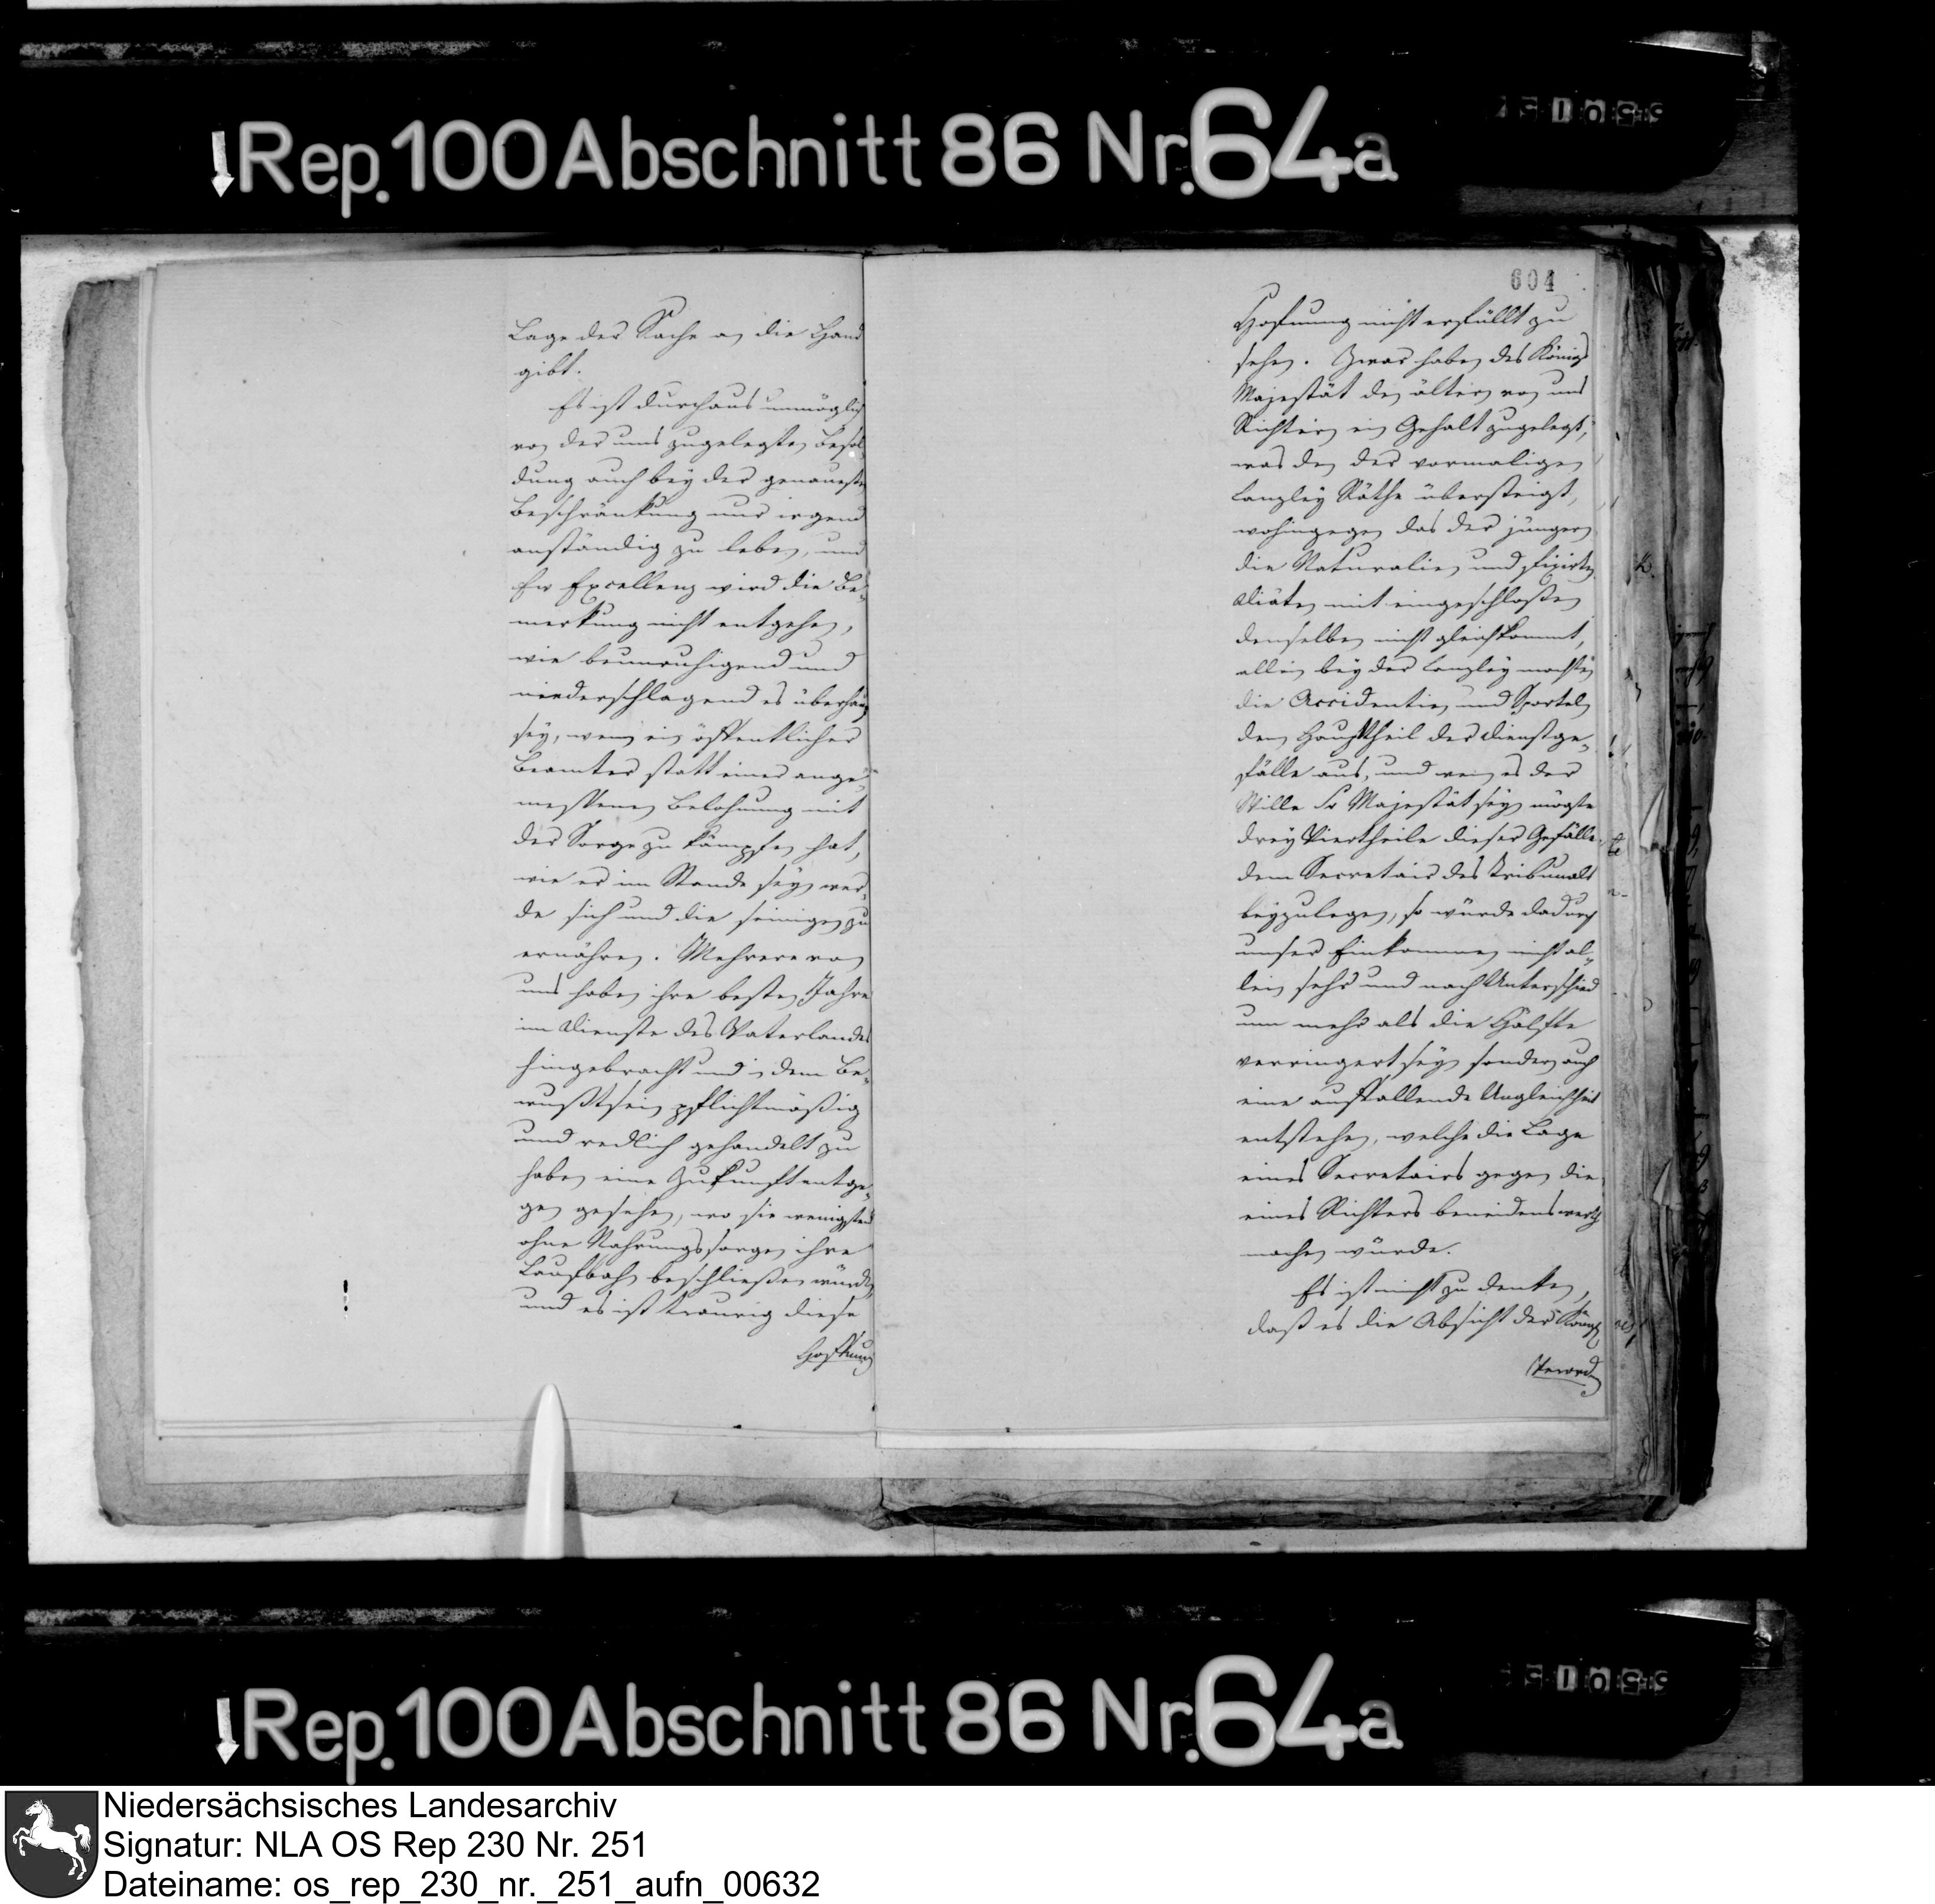 Rep. 100 Abschnitt 86 Nr. 64a
Lage der Sache an die Hand
gibt.
Es ist durchaus unmöglich
von der uns zugelegten Besol-
dung auch bey der genauesten
Beschränkung nur irgend
anständig zu leben, und
Ew Excellenz wird die Be-
merkung nicht entgehen,
wie beunruhigend und
niederschlagend es überhaupt
sey, wenn ein öffentlicher
Beamter statt einer ange-
messenen Belohnung mit
der Sorge zu kämpfen hat,
wie er im Stande seyn wer-
de sich und die seinigen zu
ernähren. Mehrere von
uns haben ihre besten Jahre
im Dienste des Vaterlandes
hingebracht und in dem Be-
wußtsein pflichtmäßig
und redlich gehandelt zu
haben eine Zukunft entge-
gen gesehen, wo sie wenigstens
ohne Nahrungssorgen ihre
Laufbahn beschließen würden,
und es ist traurig diese
Hoffnung
604
Hofnung nicht erfüllt zu
sehen. Zwar haben des Königs
Majestät den ältern von uns
Richtern ein Gehalt zugelegt,
was den der vormaligen
Canzley Räthe übersteigt,
wohingegen das der jüngern
die Naturalien und fixirten
Diäten mit eingeschloßen
denselben nicht gleichkommt,
allein bey der Canzley machten
die Accidentien und Sporteln
den Haupttheil der Dienstge-
fälle aus, und wenn es der
Wille Sr Majestät seyn mögte
drey Viertheile dieser Gefälle
dem Secretair des Tribunals
beyzulegen, so würde dadurch
unser Einkommen nicht al-
lein sehr und nach Unterschied
um mehr als die Hälfte
verringert seyn sondern auch
eine auffallende Ungleichheit
entstehen, welche die Lage
eines Secretairs gegen die
eines Richters beneidenswerth
machen würde.
Es ist nicht zu denken,
daß es die Absicht der König
Rep. 100 Abschnitt 86 Nr. 64a
Niedersächsisches Landesarchiv
Signatur: NLA OS Rep 230 Nr. 251
Dateiname: os_rep_230_nr._251_aufn_00632